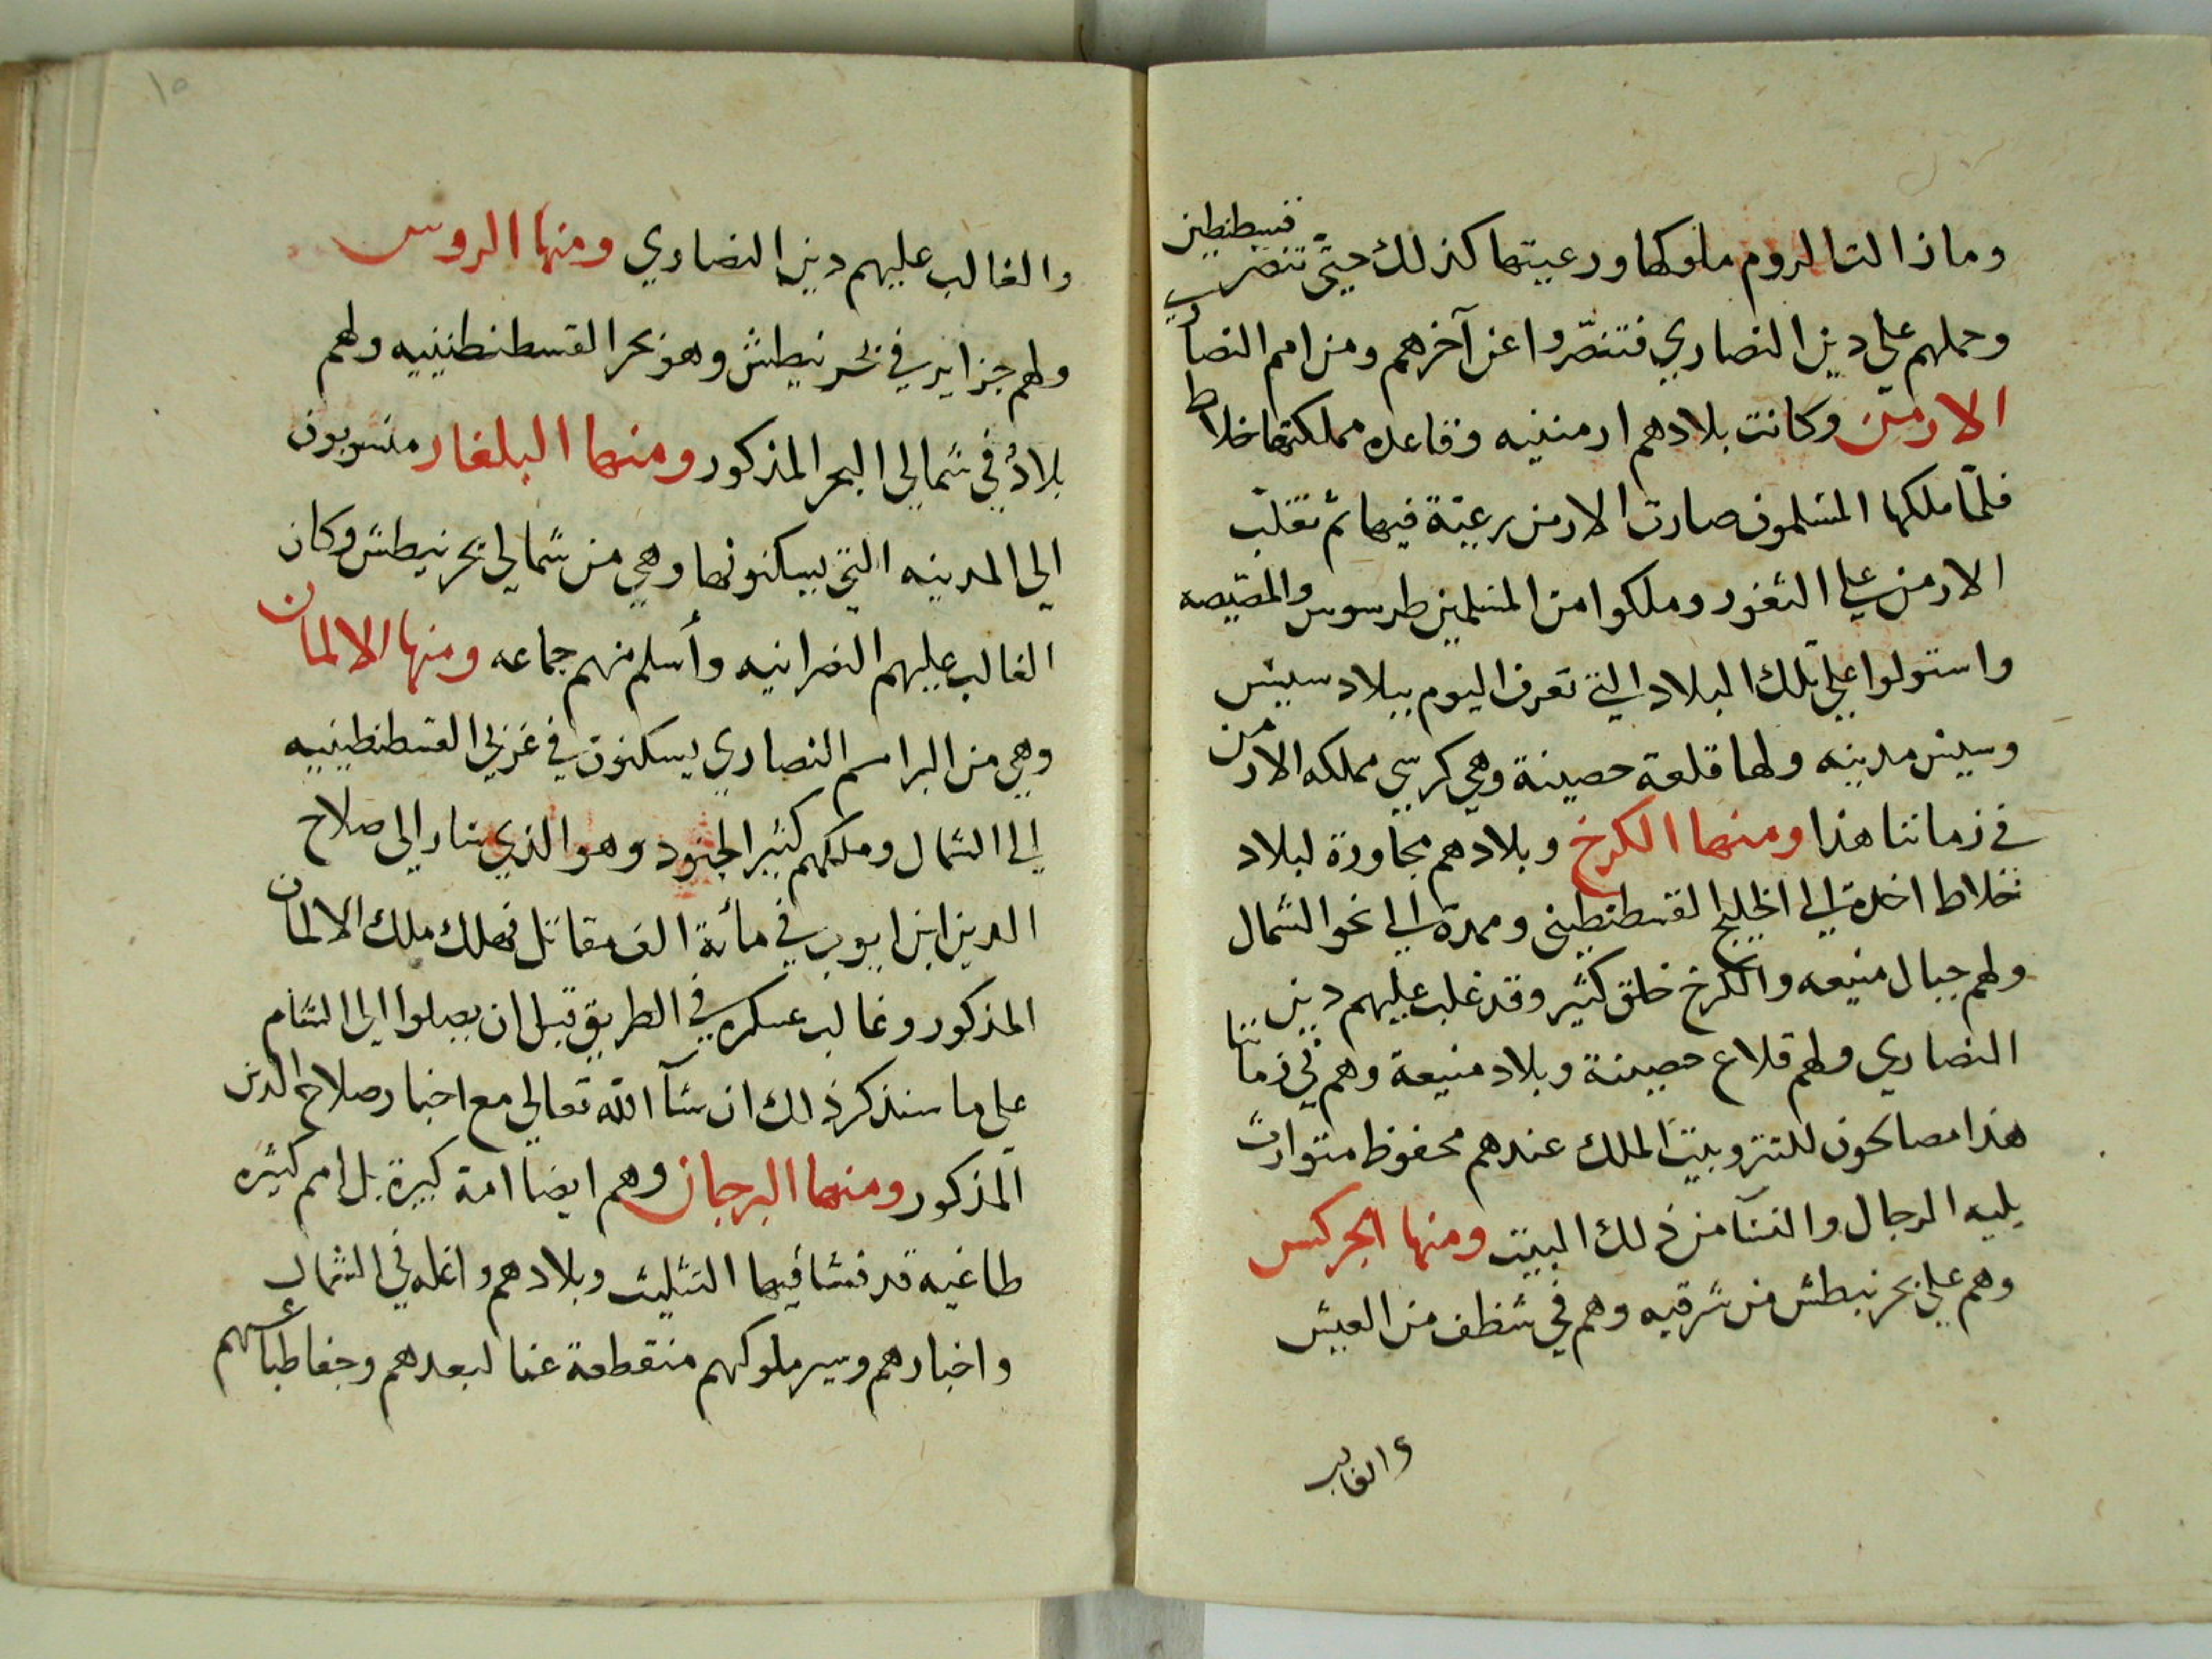 وما زالت الروم ملوكها ورعيتها كذلك حتى تنصر قسطنطين
وحملهم علي دين النصاري فتنصّروا عن آخرهم ومن امم النصاري
الارمن وكانت بلادهم ارمنيه وقاعده مملكتها خلاط
فلمّا ملكها المسلمون صارت الارمن رعيّة فيها ثم تغلّب
الارمن علي الثغور وملكوا من المسلمين طرسوس والمصيصه
واستولوا علي تلك البلاد التي تعرف اليوم ببلاد سيس
وسيس مدينه ولها قلعة حصينة وهي كرسي مملكه الارمن
في زماننا هذا ومنها الكرخ وبلادهم مجاورة لبلاد
خلاط اخذة الي الخليج القسطنطيني وممدة الي نحو الشمال
ولهم جبال منيعه والكرخ خلق كثير وقد غلب عليهم دين
النصاري ولهم قلاع حصينة وبلاد منيعة وهم في زماننا
هذا مصالحون للتتر وبيت الملك عندهم محفوظ متوارث
يليه الرجال والنسآ من ذلك البيت ومنها الجركس
وهم علي بحر نيطش من شرقيه وهم في شظف من العيش
والغالب
١٥
والغالب عليهم دين النصاري ومنها الروس
ولهم جزاير في بحر نيطش وهو بحر القسطنطينيه ولهم
بلاد في شمالي البحر المذكور ومنها البلغار منسوبون
الي المدينه التي يسكنونها وهي من شمالي بحر نيطش وكان
الغالب عليهم النصرانيه وأسلم منهم جماعه ومنها الالمان
وهي من اكبر امم النصاري يسكنون في غربي القسطنطينيه
الي الشمال وملكهم كثير الجنود وهو الذي سار الي صلاح
الدين ابن ايوب في مأئة الف مقاتل فهلك ملك الالمان
المذكور وغالب عسكره في الطريق قبل ان يصلوا الي الشام
علي ما سنذكر ذلك ان شآ الله تعالي مع اخبار صلاح الدين
المذكور ومنها البرجان وهم ايضا امة كبيرة بل امم كثيره
طاغيه قد فشا فيها التثليث وبلادهم واغله في الشمال
واخبارهم وسير ملوكهم منقطعة عنا لبعدهم وجفا طبآئعهم